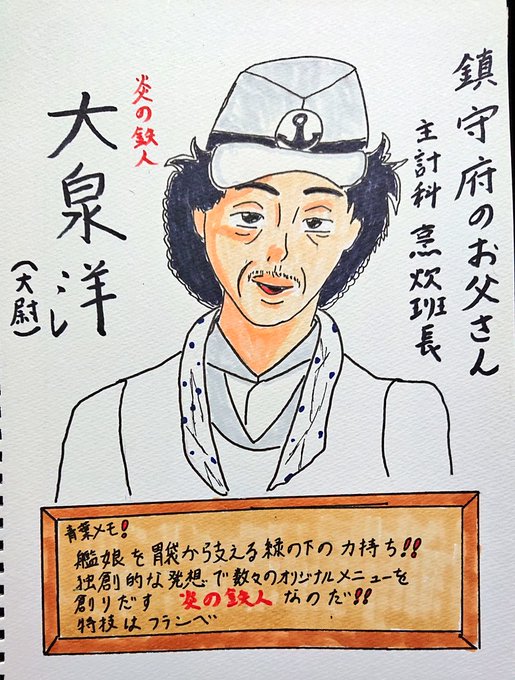 鎮守府のお父さん
主計科 烹炊班長
炎の鉄人
大泉洋
(大尉)
青葉メモ!
艦娘を胃袋から支える縁の下の力持ち!!
独創的な発想で数々のオリジナルメニューを
創りだす 炎の鉄人 なのだ!!
特技はフランベ